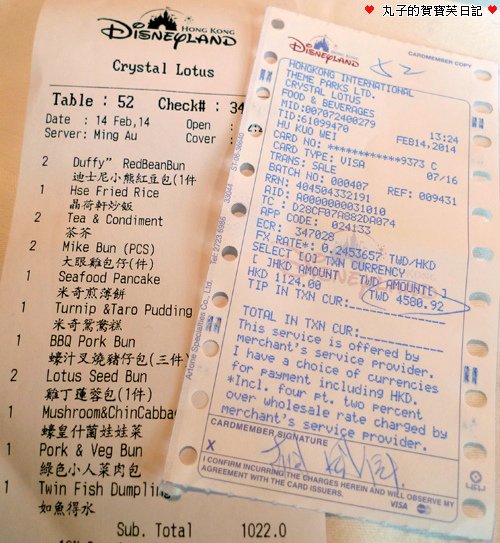 ♥ 丸子的賀寶芙日記 ♥
HONG KONG
DISNEYLAND
Crystal Lotus
Table : 52 Check# : 34
Date : 14 Feb,14 Open :
Server: Ming Au Cover :
2 Duffy" RedBeanBun
迪士尼小熊紅豆包(1件
1 Hse Fried Rice
晶荷軒炒飯
2 Tea & Condiment
茶芥
2 Mike Bun (PCS)
大眼雞包仔(件)
1 Seafood Pancake
米奇煎薄餅
1 Turnip &Taro Pudding
米奇鴛鴦糕
1 BBQ Pork Bun
蠔汁叉燒豬仔包(三件)
2 Lotus Seed Bun
雞丁蓮蓉包(1件)
1 Mushroom&ChinCabbag
蠔皇什菌娃娃菜
1 Pork & Veg Bun
綠色小人菜肉包
1 Twin Fish Dumpling
如魚得水
Sub. Total 1022.0
HONG KONG
DISNEYLAND
CARDMEMBER COPY
52
HONGKONG INTERNATIONAL
THEME PARKS LTD.
CRYSTAL LOTUS
FOOD & BEVERAGES
MID:007072400279 13:24
TID:61099470 FEB14,2014
HU KUO WEI
CARD NO: ************9373 C
CARD TYPE: VISA 07/16
TRANS: SALE
BATCH NO: 000407 REF: 009431
RRN: 404504332191
AID: A0000000031010
TC : D28CF07A882DA074
APP CODE: 024133
ECR: 347028
FX RATE*: 0.2453657 TWD/HKD
SELECT TXN CURRENCY
[ ]HKD AMOUNT TWD AMOUNT[ ]
HKD 1124.00 TWD 4580.92
TIP IN TXN CUR:
TOTAL IN TXN CUR:
This service is offered by
Merchant's service provider.
I have a choice of currencies
for payment including HKD.
*Incl. four pt. two percent
over wholesale rate charged by
merchant's service provider.
CARDMEMBER SIGNATURE
X
I CONFIRM INCURRING THE CHARGES HEREIN AND WILL OBSERVE MY
AGREEMENT WITH THE CARD ISSUERS.
VISA